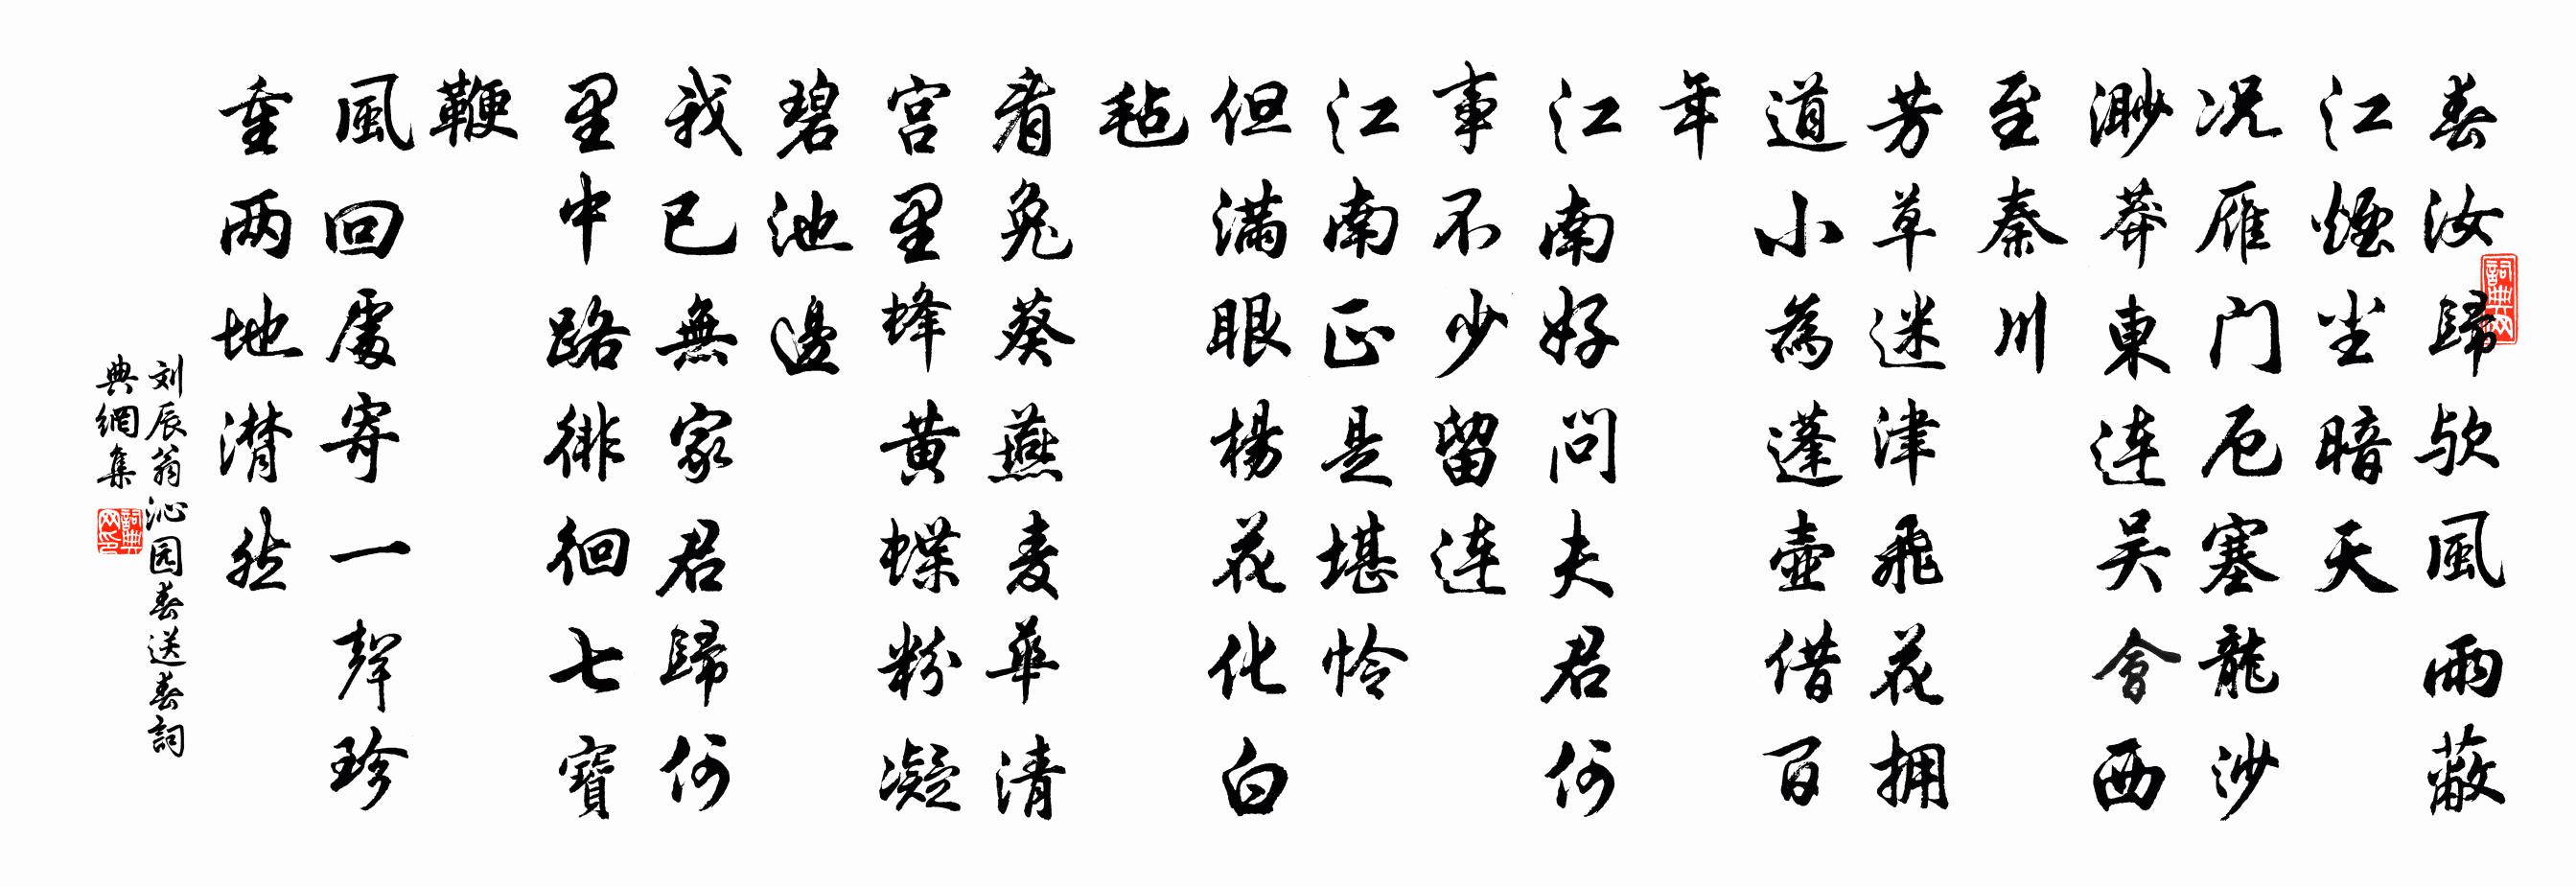 春汝歸欤風雨蔽
江煙尘暗天
况雁门厄塞龍沙
渺莽東连吴會西
至秦川
芳草迷津飛花拥
道小為蓬壺借百
年
江南好问夫君何
事不少留连
江南正是堪怜
但满眼楊花化白
毡
看兔葵燕麦華清
宫里蜂黄蝶粉凝
碧池邊
我已無家君歸何
里中路徘徊七寶
鞭
風回處寄一聲珍
重两地潸然
刘辰翁沁园春送春詞
典網集
詞典网
詞典网印